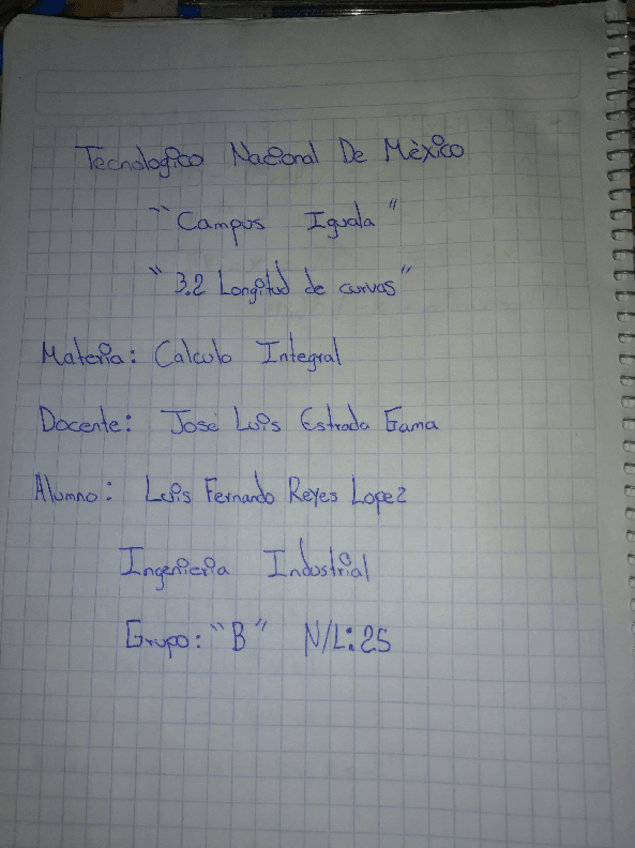 Tecnologico Nacional De Mèxico
"Campus Iguala"
"3.2 Longitud de curvas"
Materia: Calculo Integral
Docente: José Luis Estrada Gama
Alumno: Luis Fernando Reyes Lopez
Ingenieria Industrial
Grupo: "B" N/L: 25